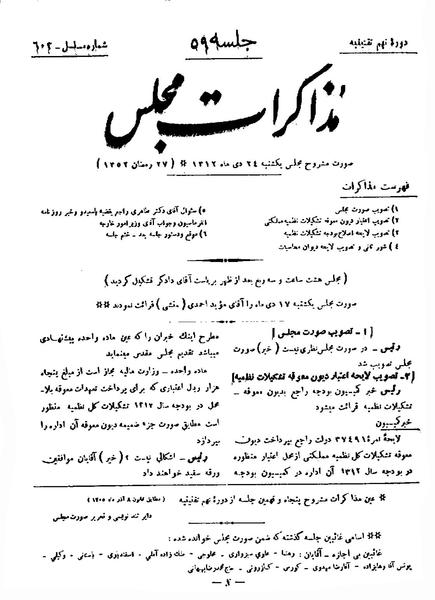 دورهٔ نهم تقنینیه
جلسه ۵۹
شماره مسلسل - ۶۰۴
مذاکرات مجلس
صورت مشروح مجلس یکشنبه ۲۴ دی ماه ۱۳۱۲ * (۲۷ رمضان ۱۳۵۲)
فهرست مذاکرات
۱) تصویب صورت مجلس
۲) تصویب لایحه اعتبار دیون معوقه تشکیلات نظمیه مملکتی
۳) تصویب لایحه اصلاح بودجه تشکیلات نظمیه
۴) شور ثانی و تصویب لایحه دیوان محاسبات
۵) سئوال آقای دکتر طاهری راجع بقضیه
۶) موقع و دستور جلسه بعد - ختم جلسه
(مجلس هشت ساعت و سه ربع بعد از ظهر بریاست آقای دادگر تشکیل گردید)
صورت مجلس یکشنبه ۱۷ دی ماه را آقای مؤید احمدی (منشی) قرائت نمودند
[۱ - تصویب صورت مجلس]
رئیس - در صورت مجلس نظری نیست (خیر) صورت
مجلس تصویب شد
[۲ - تصویب لایحه اعتبار دیون معوقه تشکیلات نظمیه]
رئیس خبر کمیسیون بودجه راجع بدیون معوقه -
تشکیلات نظمیه قرائت میشود
خبر کمیسیون
لایحهٔ نمرهٔ ۳۷۴۹۱ دولت راجع بپرداخت دیون
معوقه تشکیلات کل نظمیه مملکتی از محل اعتبار منظوره
در بودجه سال ۱۳۱۲ آن اداره در کمیسیون بودجه
مطرح اینک خبر آن را که عین ماده واحده پیشنهادی
میباشد تقدیم مجلس مقدس مینماید
ماده واحده - وزارت مالیه مجاز است از مبلغ پنجاه
هزار ریال اعتباری که برای پرداخت تعهدات معوقه بلا
محل در بودجه سال ۱۳۱۲ تشکیلات کل نظمیه منظور
است مطابق صورت جزء ضمیمه دیون معوقه آن اداره را
بپردازد
رئیس - اشکالی نیست؟ (خیر) آقایان موافقین
ورقه سفید خواهند داد
عین مذاکرات مشروح پنجاه و نهمین جلسه از دورهٔ نهم تقنینیه
(مطابق قانون ۸ آذر ماه ۱۳۰۵)
دایره تند نویسی و تحریر صورت مجلس
اسامی غائبین جلسه گذشته که ضمن صورت مجلس خوانده شده:
غائبین بی اجازه - آقایان: رهنما - علوی سبزواری - مخلوجی - ملک زاده آملی - اسفندیاری - باستانی - وکیلی -
یونس آقا وهابزاده - آقا رضا مهدوی - کورس - کازرونی - حاج محمد رضا بهبهانی